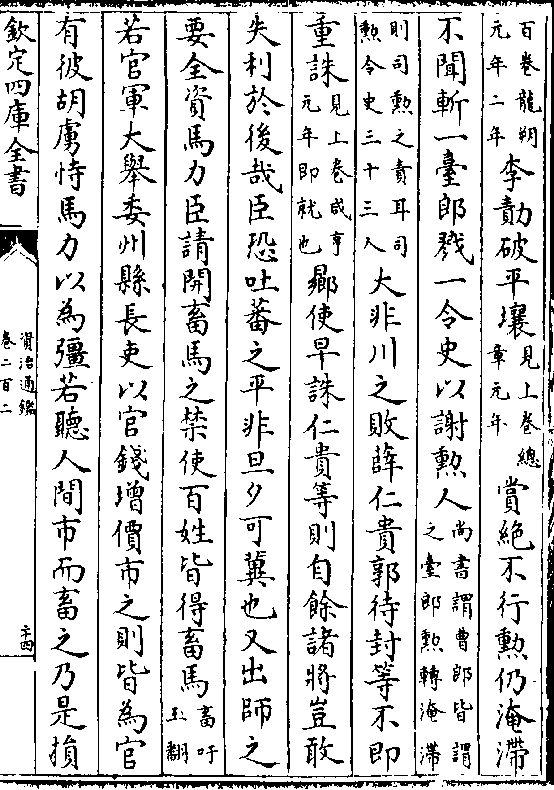 百卷龍朔
元年二年
李勣破平壤
見上卷總
章元年
賞絶不行勲仍淹滯
不聞斬一臺郎戮一令史以謝勲人
尚書謂曹郎皆謂
之臺郎勲轉淹滯
則司勲之責耳司
勲令史三十三人
大非川之敗薛仁貴郭待封等不即
重誅
見上卷咸亨
元年即就也
曏使早誅仁貴等則自餘諸將豈敢
失利於後哉臣恐吐蕃之平非旦夕可冀也又出師之
要全資馬力臣請開畜馬之禁使百姓皆得畜馬
畜吁
玉翻
若官軍大舉委州縣長吏以官錢增價市之則皆為官
有彼胡虜恃馬力以為彊若聽人間市而畜之乃是損
欽定四庫全書
資治通鑑
卷二百二
二十四